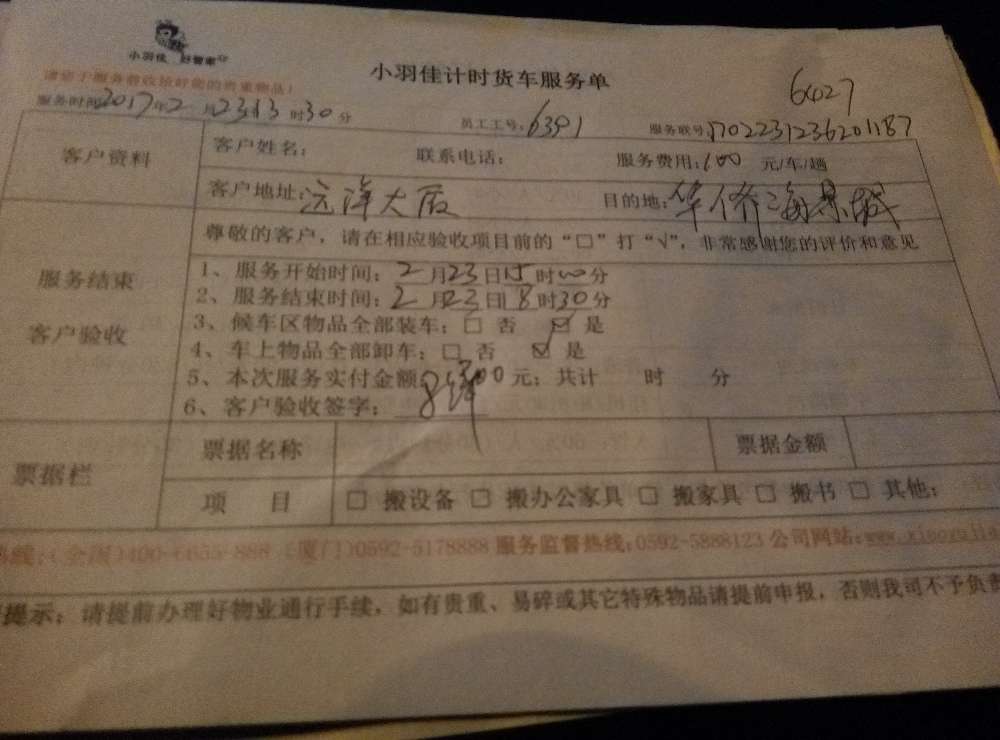 小羽佳 好管家
小羽佳计时货车服务单
6427
请您于服务前收拾好您的贵重物品!
服务时间2017年2月23日13时30分 员工工号:6391 服务联号:1702231236201187
客户资料
客户姓名: 联系电话: 服务费用:100 元/车/趟
客户地址:远洋大厦 目的地:华侨海景城
服务结束
客户验收
尊敬的客户，请在相应验收项目前的“□”打“√”，非常感谢您的评价和意见
1、服务开始时间:2月23日15时00分
2、服务结束时间:2月23日18时30分
3、候车区物品全部装车:□ 否 ☑ 是
4、车上物品全部卸车:□ 否 ☑ 是
5、本次服务实付金额300元；共计 时 分
6、客户验收签字:
票据栏
票据名称 票据金额
项 目 □ 搬设备 □ 搬办公家具 □ 搬家具 □ 搬书 □ 其他:
热线:(全国)400-6655-888 (厦门)0592-5178888 服务监督热线:0592-5888123 公司网站:www.xiaoyujia
提示: 请提前办理好物业通行手续，如有贵重、易碎或其它特殊物品请提前申报，否则我司不予负责